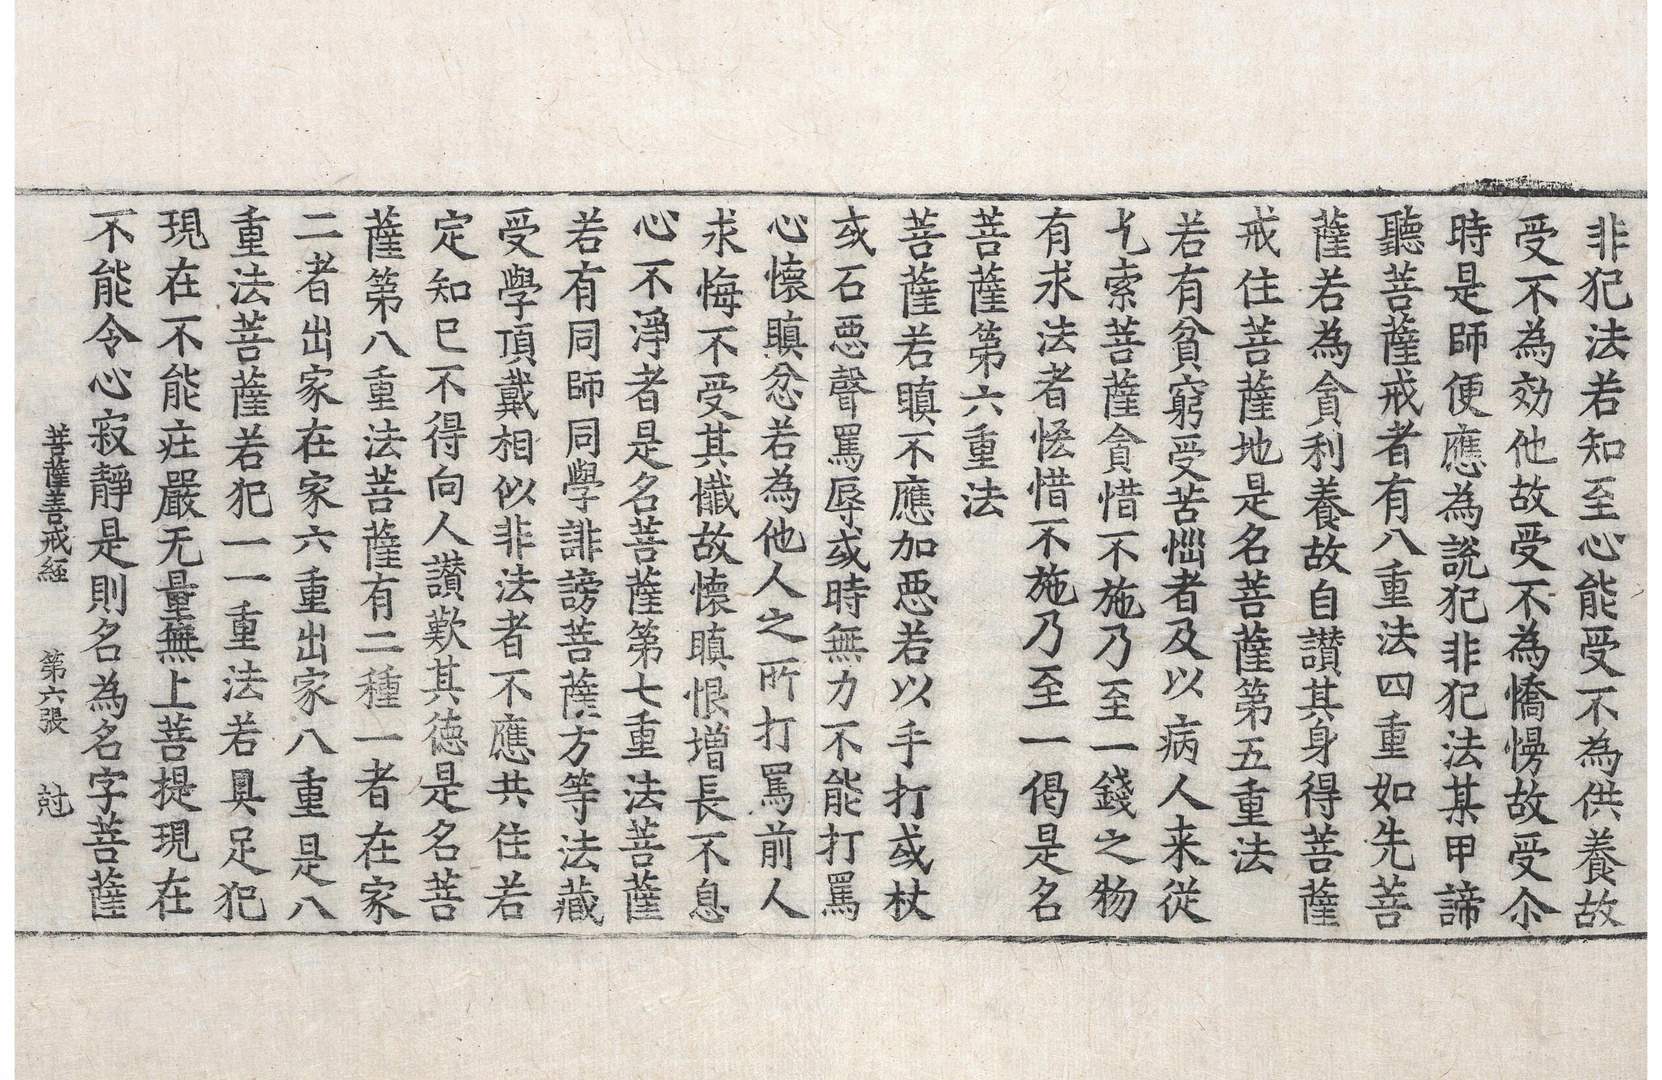 非犯法若知至心能受不為供養故
受不為効他故受不為憍慢故受尒
時是師便應為說犯非犯法某甲諦
聽菩薩戒者有八重法四重如先菩
薩若為貪利養故自讃其身得菩薩
戒住菩薩地是名菩薩第五重法
若有貧窮受苦惱者及以病人来従
乞索菩薩貪惜不施乃至一錢之物
有求法者恡惜不施乃至一偈是名
菩薩第六重法
菩薩若瞋不應加惡若以手打或杖
或石惡聲罵辱或時無力不能打罵
心懷瞋忿若為他人之所打罵前人
求悔不受其懺故懷瞋恨增長不息
心不淨者是名菩薩第七重法菩薩
若有同師同學誹謗菩薩方等法藏
受學頂戴相似非法者不應共住若
定知已不得向人讃歎其德是名菩
薩第八重法菩薩有二種一者在家
二者出家在家六重出家八重是八
重法菩薩若犯一一重法若具足犯
現在不能庄嚴无量無上菩提現在
不能令心寂靜是則名為名字菩薩
菩薩善戒經 第六張